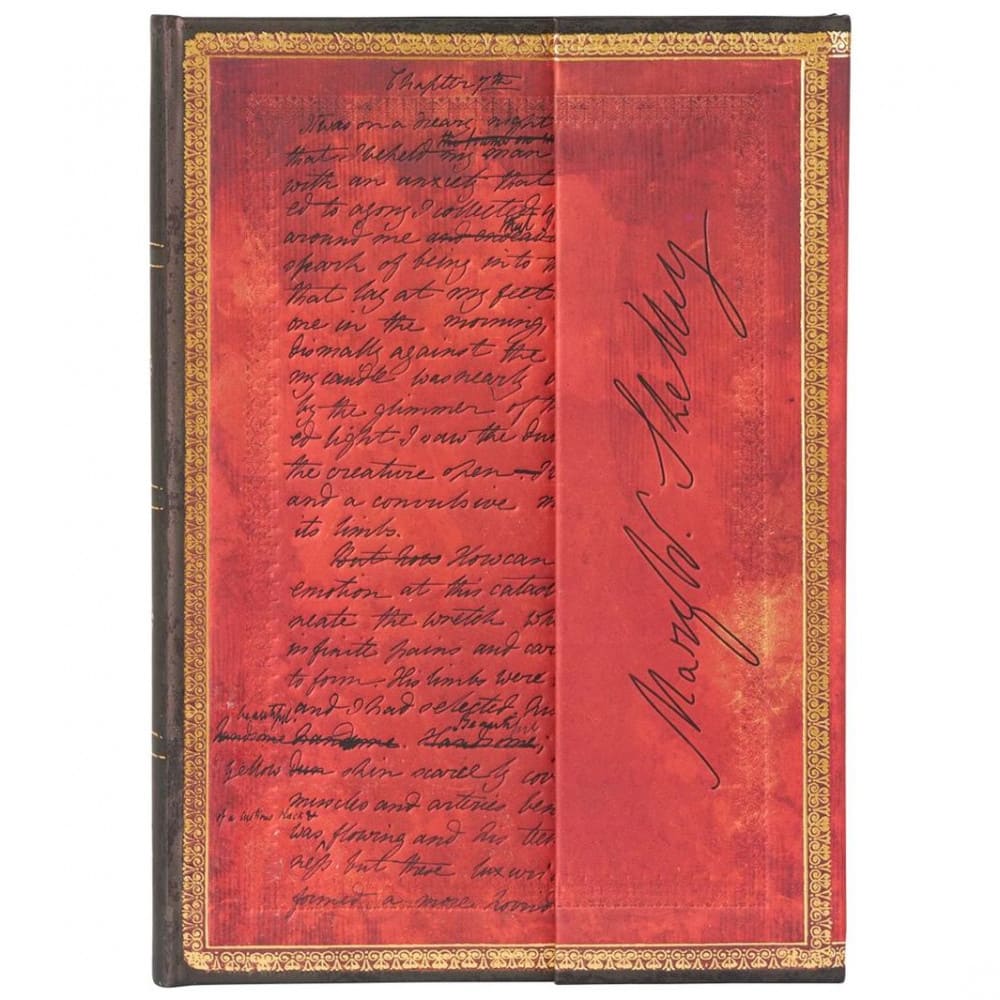 Chapter 7th
It was on a dreary night
the frame on
that I beheld my man
with an anxiety that
ed to agony I collected
that
around me and endeav
spark of being into
that lay at my feet.
one in the morning,
dismally against the
my candle was nearly
by the glimmer of
ed light I saw the du
the creature open
and a convulsive m
its limbs.
But how How can
emotion at this catas
neate the wretch wh
infinite pains and car
to form. His limbs were
and I had selected
beautiful
Beautiful
handsome handsome. Handsome;
yellow dun skin scarcely cov
muscles and arteries ben
of a lustrous black &
was flowing and his tee
ness but these luxuri
formed a more horrid
Mary W. Shelley